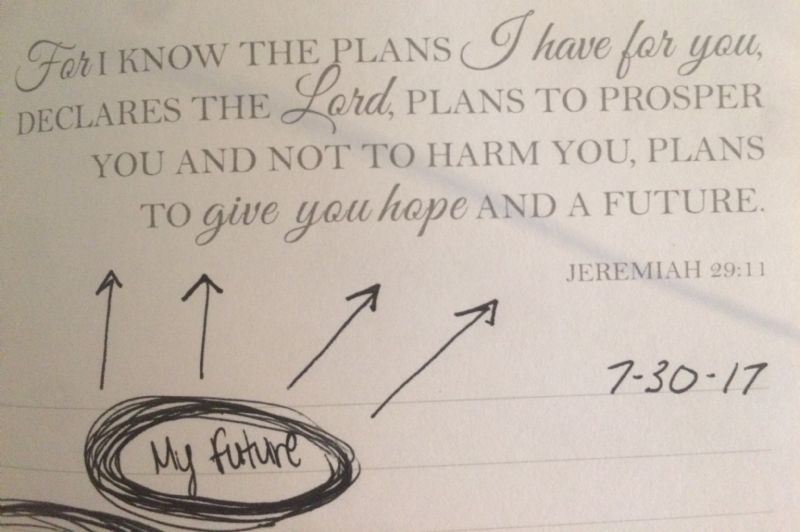 For I KNOW THE PLANS I have for you,
DECLARES THE Lord, PLANS TO PROSPER
YOU AND NOT TO HARM YOU, PLANS
TO give you hope AND A FUTURE.
JEREMIAH 29:11
7-30-17
My Future